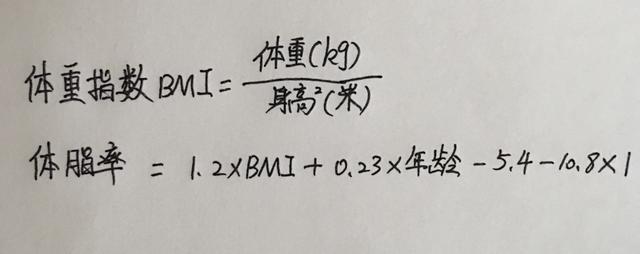 体重指数BMI=体重(kg)/身高²(米)
体脂率 = 1.2×BMI+0.23×年龄-5.4-10.8×1